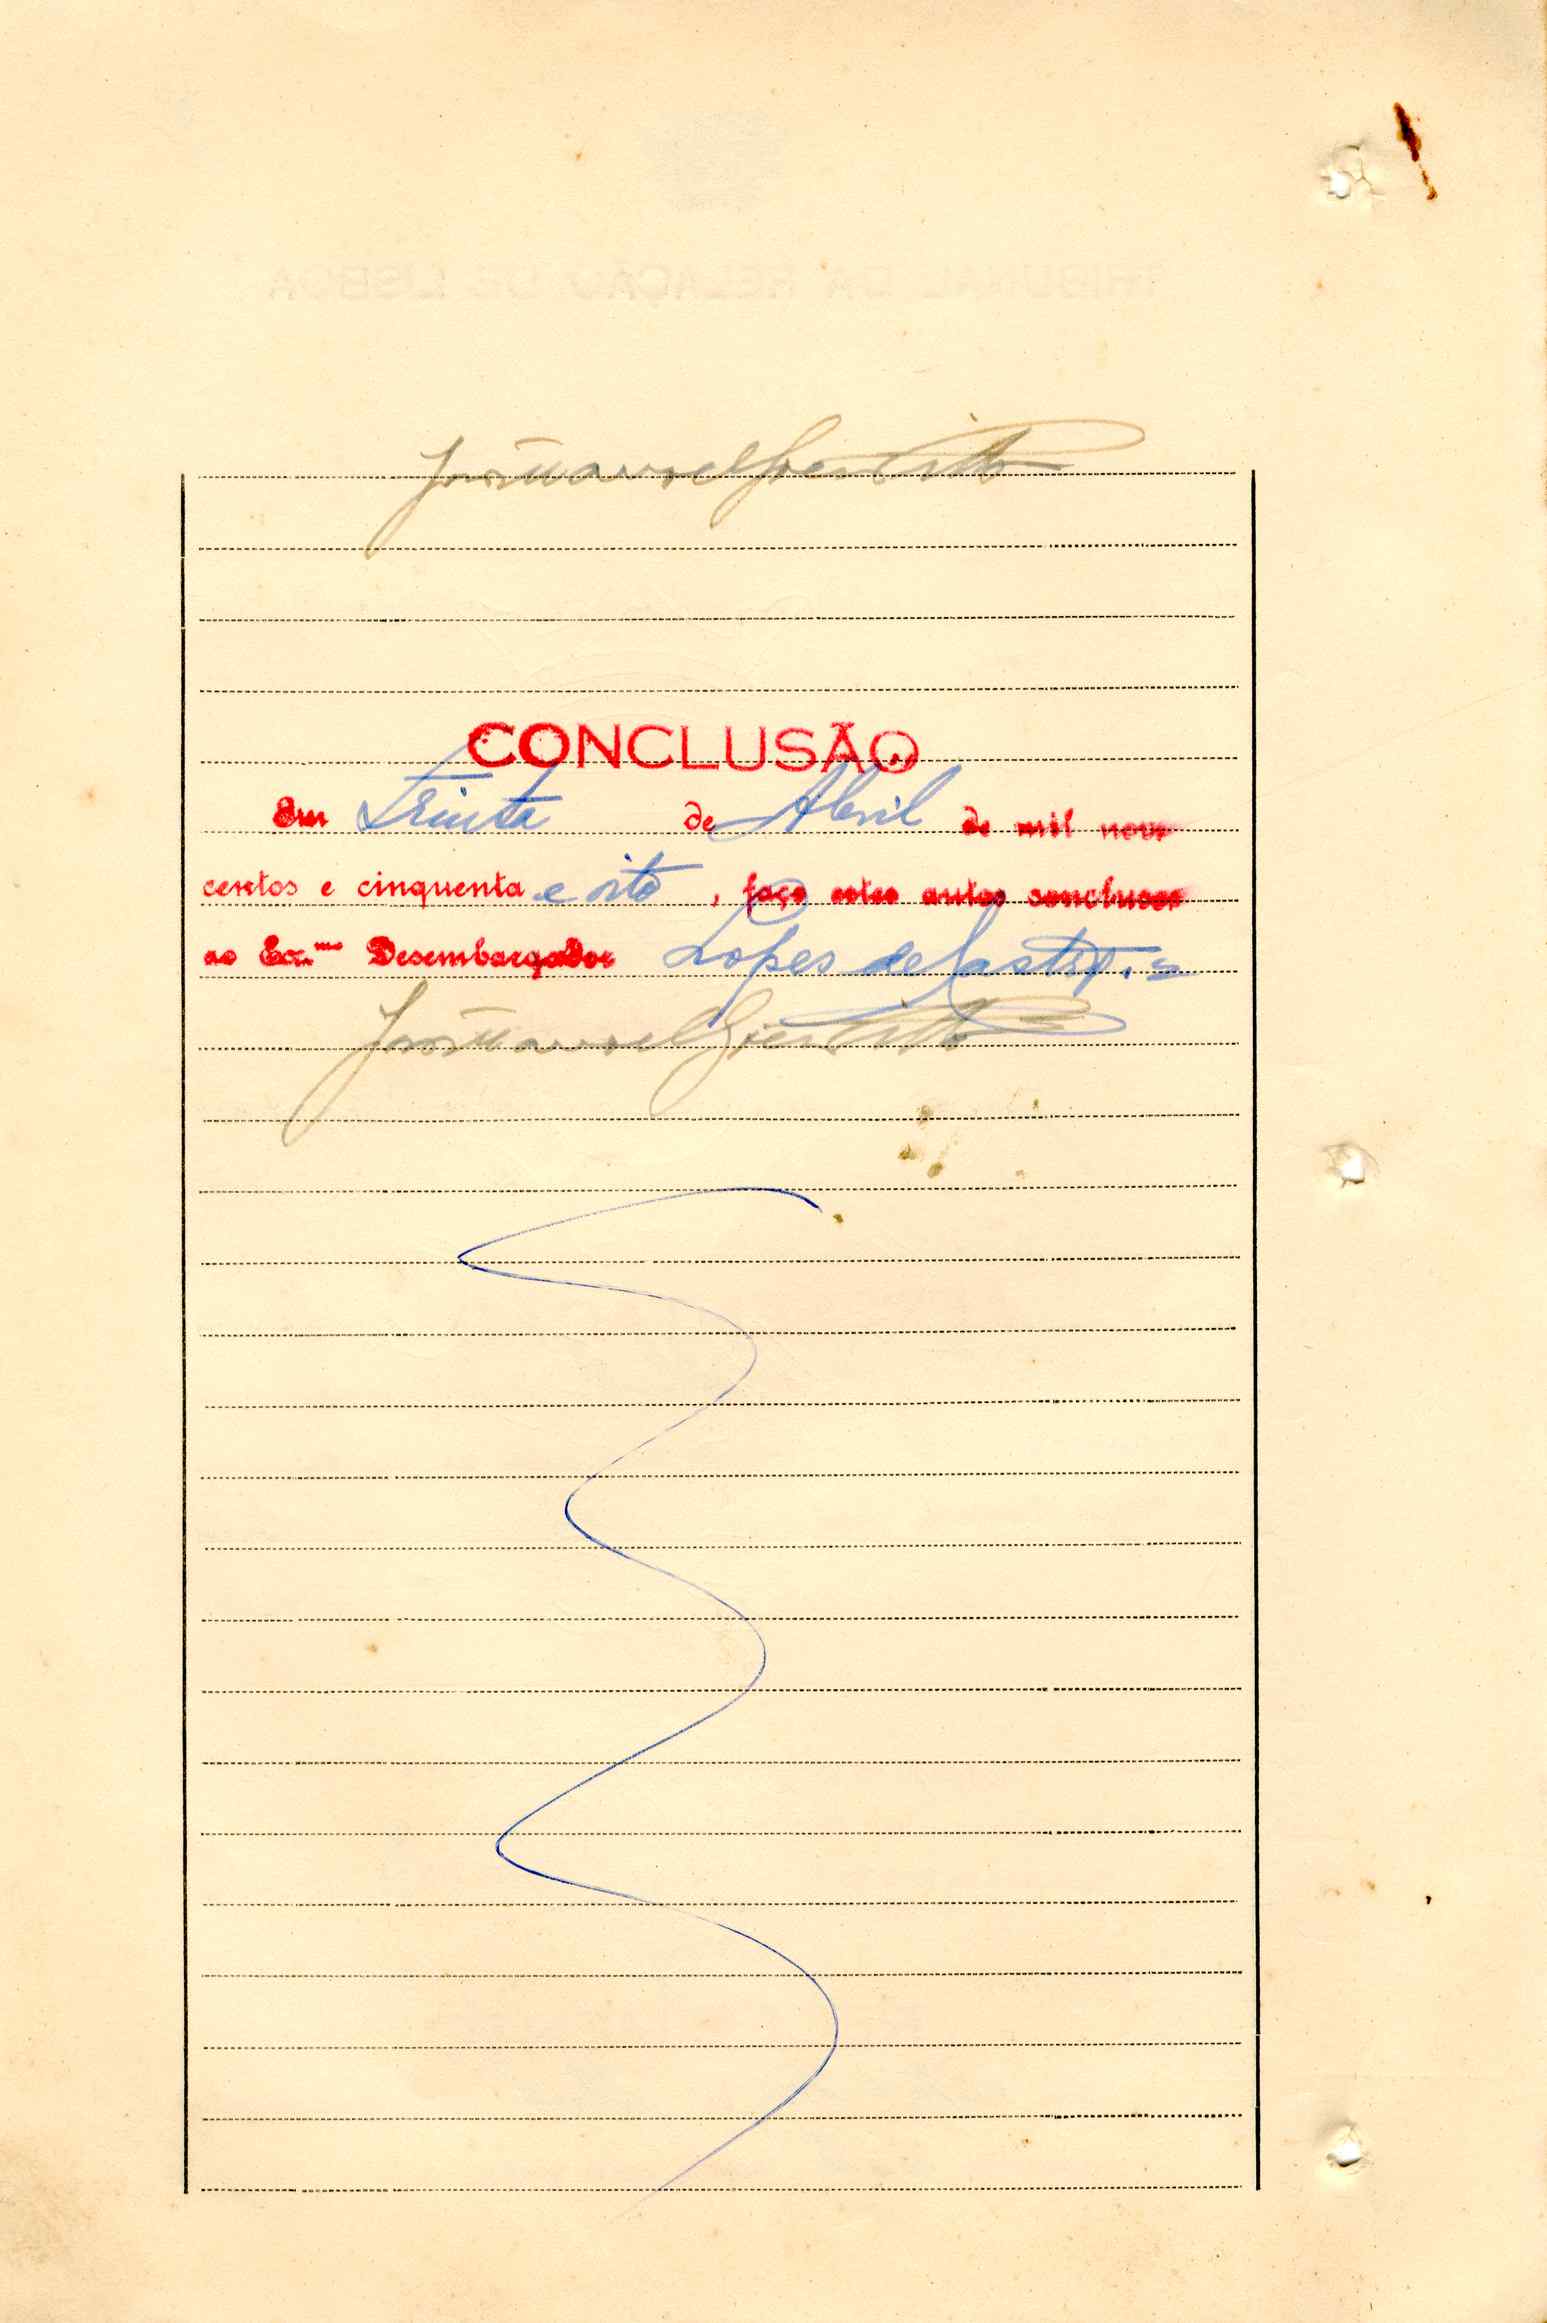 TRIBUNAL DA RELAÇÃO DE LISBOA
José Manoel
CONCLUSÃO
Em trinta de Abril de mil nove
centos e cinquenta e oito, faço estes autos conclusos
ao Ex.mo Desembargador Lopes de Castro.=
José Manoel